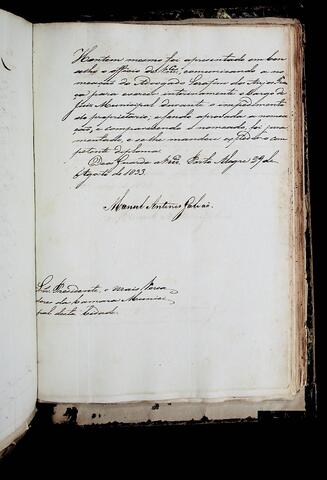 Hontem mesmo foi apresentado em con
selho o officio de V.Sas, communicando a no
meação do Advogado Serafim dos Anjos
para exercer interinamente o Cargo de
Juiz Municipal durante o impedimento
do proprietario, e sendo approvada a nomea
ção, e comparecendo o nomeado, foi jura
mentado, e se lhe mandou expedir o com
petente diploma.
Deos Guarde a V.Sas. Porto Alegre 29 de
Agosto de 1833.
Manoel Antonio Galvão.
Snr. Presidente, e mais Verea
dores da Camara Munici
pal desta Cidade.